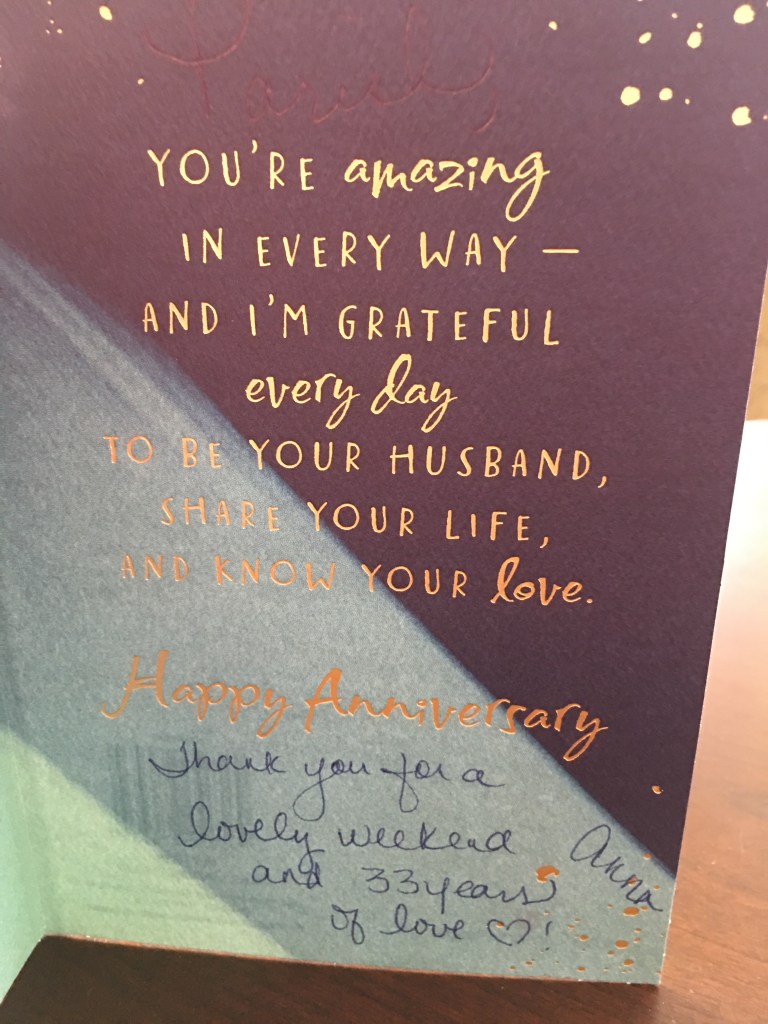 YOU'RE amazing
IN EVERY WAY –
AND I'M GRATEFUL
every day
TO BE YOUR HUSBAND,
SHARE YOUR LIFE,
AND KNOW YOUR love.
Happy Anniversary
Thank you for a
lovely weekend
and 33 years
of love ♡!
Anna